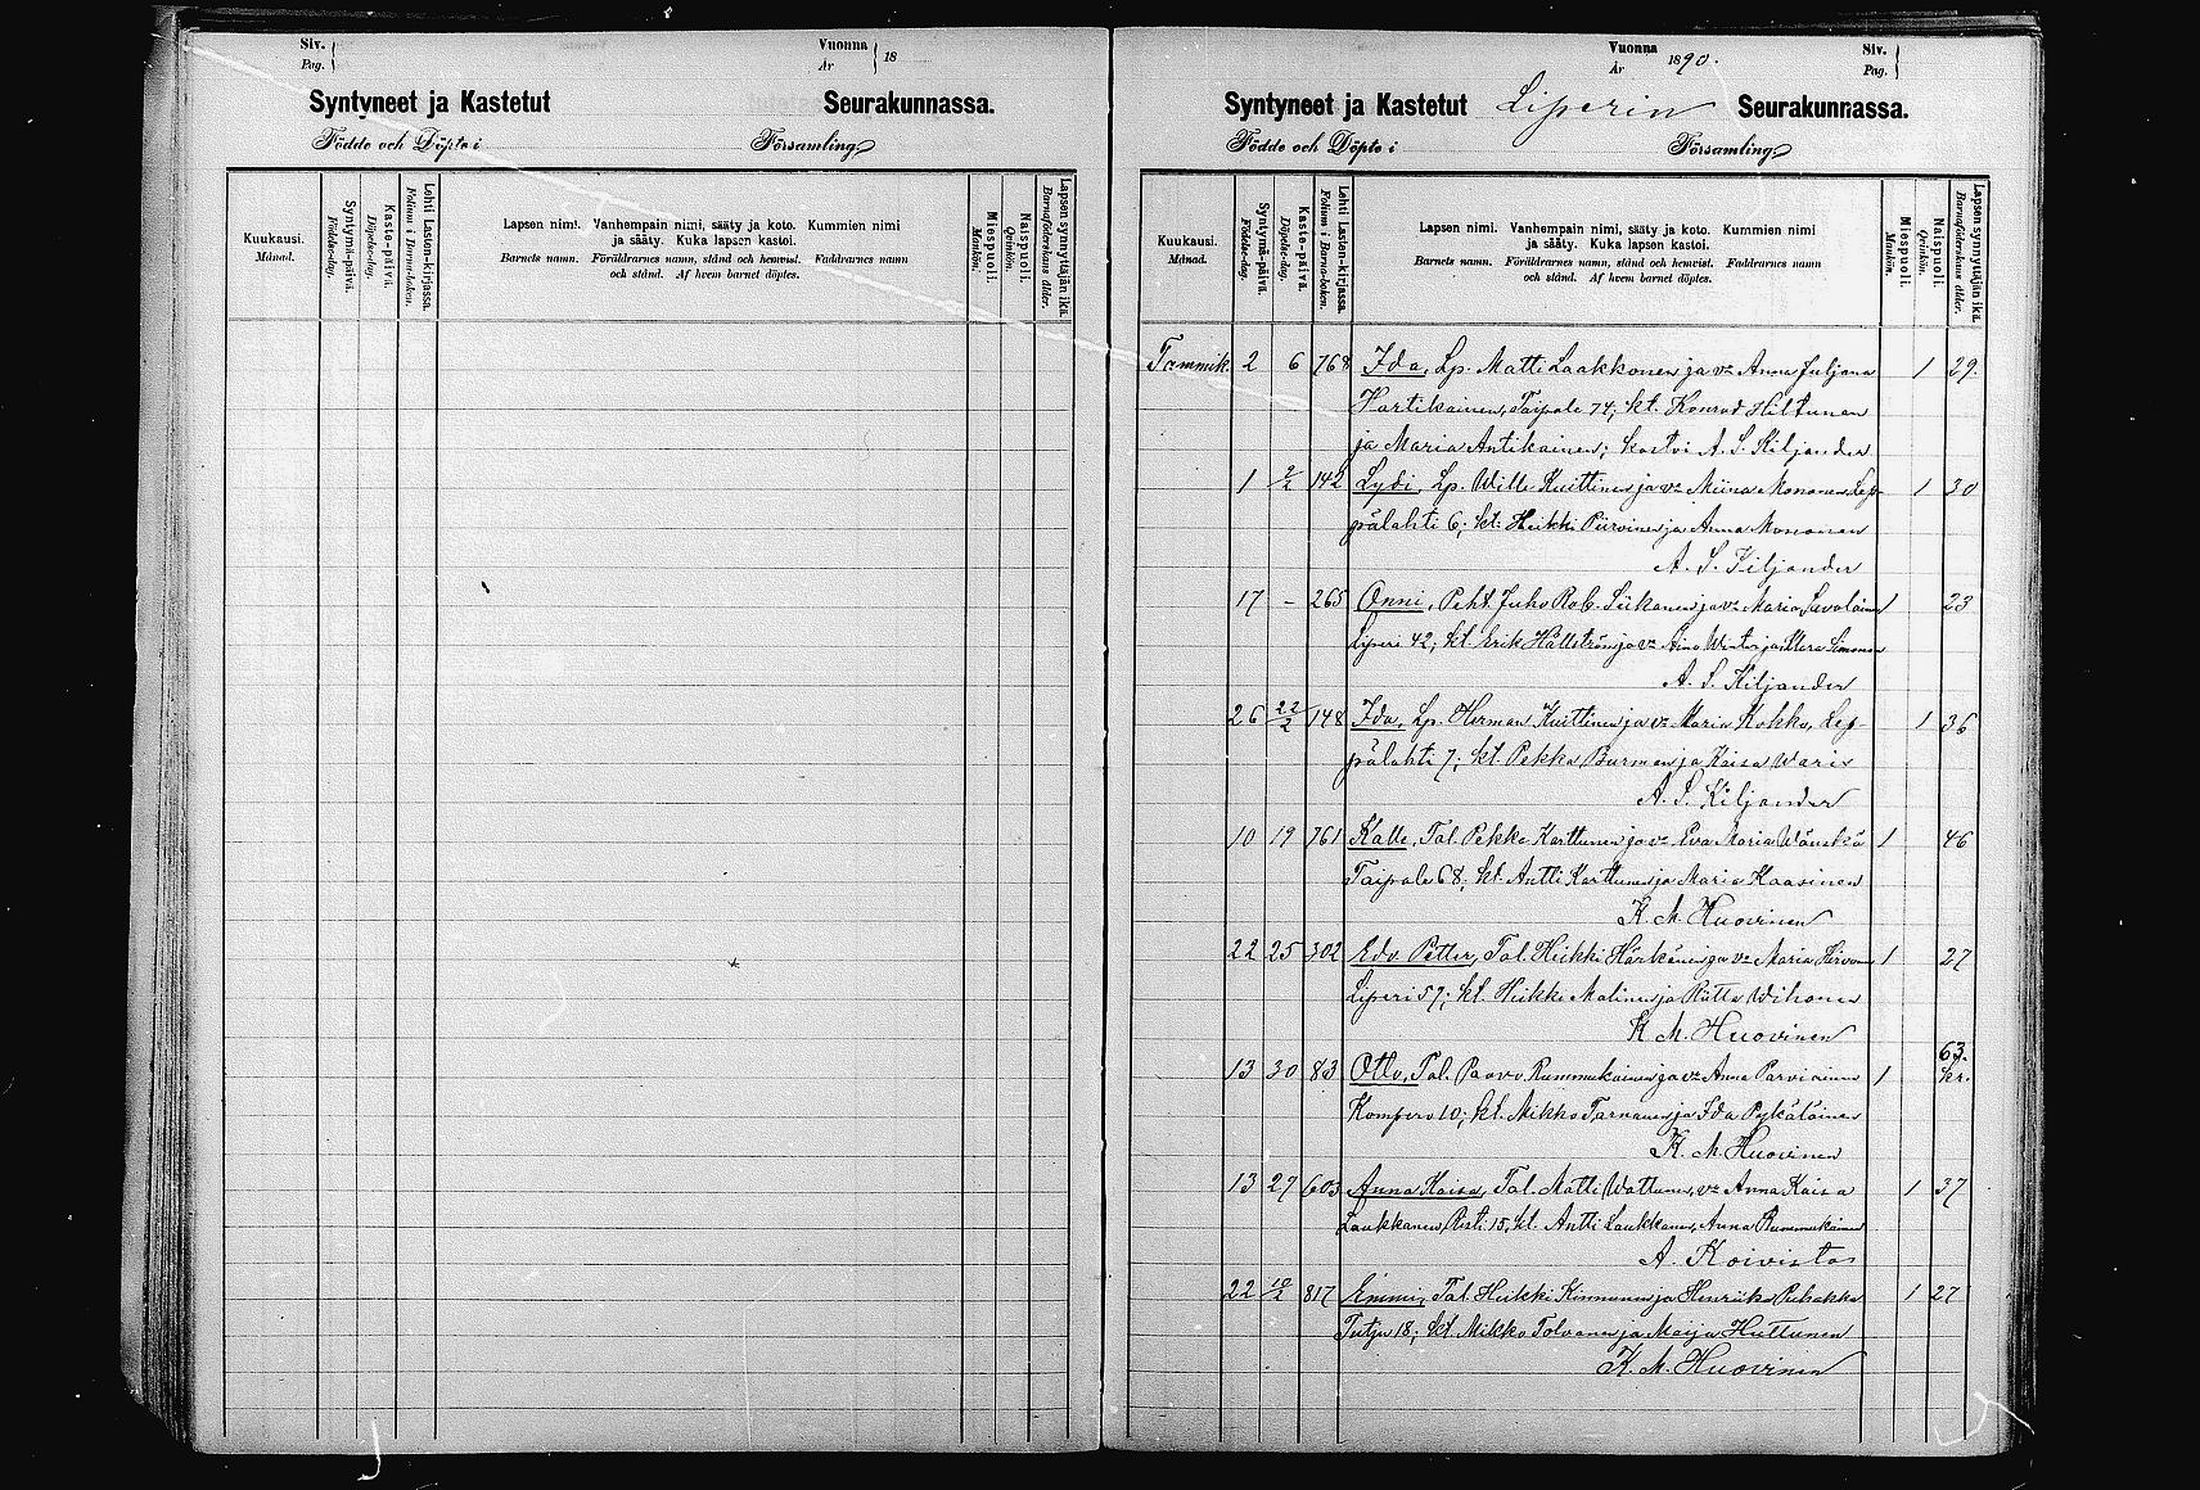 Siv.
Pag.
Vuonna
År
18
Syntyneet ja Kastetut Seurakunnassa.
Födde och Döpte i Församling
Kuukausi.
Månad.
Syntymä-päivä.
Födelse-dag.
Kaste-päivä.
Döpelse-dag.
Lehti Lasten-kirjassa.
Folium i Barna-boken.
Lapsen nimi. Vanhempain nimi, sääty ja koto. Kummien nimi
ja sääty. Kuka lapsen kastoi.
Barnets namn. Föräldrarnes namn, stånd och hemvist. Faddrarnes namn
och stånd. Af hvem barnet döptes.
Miespuoli.
Mankön.
Naispuoli.
Qvinkön.
Lapsen synnyttäjän ikä.
Barnaföderskans ålder.
Vuonna
År
1890.
Siv.
Pag.
Syntyneet ja Kastetut Liperin Seurakunnassa.
Födde och Döpte i Församling
Kuukausi.
Månad.
Syntymä-päivä.
Födelse-dag.
Kaste-päivä.
Döpelse-dag.
Lehti Lasten-kirjassa.
Folium i Barna-boken.
Lapsen nimi. Vanhempain nimi, sääty ja koto. Kummien nimi
ja sääty. Kuka lapsen kastoi.
Barnets namn. Föräldrarnes namn, stånd och hemvist. Faddrarnes namn
och stånd. Af hvem barnet döptes.
Miespuoli.
Mankön.
Naispuoli.
Qvinkön.
Lapsen synnyttäjän ikä.
Barnaföderskans ålder.
Tammik. 2 6 768 Ida, Lp. Matti Laakkonen ja vo Anna Juljana 1 29.
Hartikainen, Taipale 74; kt. Konrad Hiltunen
ja Maria Antikainen; kastoi A. S. Kiljander
1 2/2 142 Lydi, Lp. Wille Kuittinen ja vo Miina Mononen, Lep- 1 30
pälahti 6; kt. Heikki Piirvinen ja Anna Mononen
A. S. Kiljander
17 - 265 Onni, Peht. Juho Rob. Siikanen ja vo Maria Savolainen 1 23
Liperi 42; kt. Erik Hällström ja vo Aina Winter ja Simonen
A. S. Kiljander
26 22/2 148 Ida, Lp. Herman Kuittinen ja vo Maria Kokko, Lep- 1 36
pälahti 7; kt. Pekka Burmen ja Kaisa Waris
A. S. Kiljander
10 19 761 Kalle, Tal. Pekka Karttunen ja vo Eva Maria Wänskä 1 46
Taipale 68; kt. Antti Karttunen ja Maria Kaasinen
K. M. Huovinen
22 25 302 Edv. Petter, Tal. Heikki Härkönen ja vo Maria Hirvonen 1 27
Liperi 57; kt. Heikki Malinen ja Riitta Wihonen
K. M. Huovinen
13 30 83 Otto, Tal. Paavo Rummukainen ja vo Anna Parviainen 1 63. kr.
Kompero 10; kt. Mikko Tarnanen ja Ida Pykäläinen
K. M. Huovinen
13 27 603 Anna Kaisa, Tal. Matti Wattunen, vo Anna Kaisa 1 37
Laukkanen, Risti 15, kt. Antti Laukkanen, Anna Rummukainen
A. Koivisto
22 10/2 817 Emmi, Tal. Heikki Kinnunen ja Henriika Puhakka 1 27
18; kt. Mikko Tolvanen ja Maija Huttunen
K. M. Huovinen